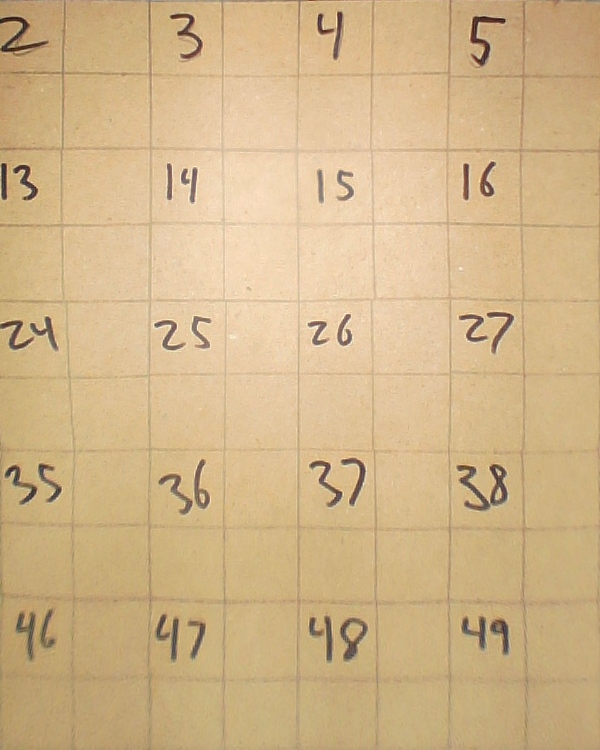 2 3 4 5
13 14 15 16
24 25 26 27
35 36 37 38
46 47 48 49